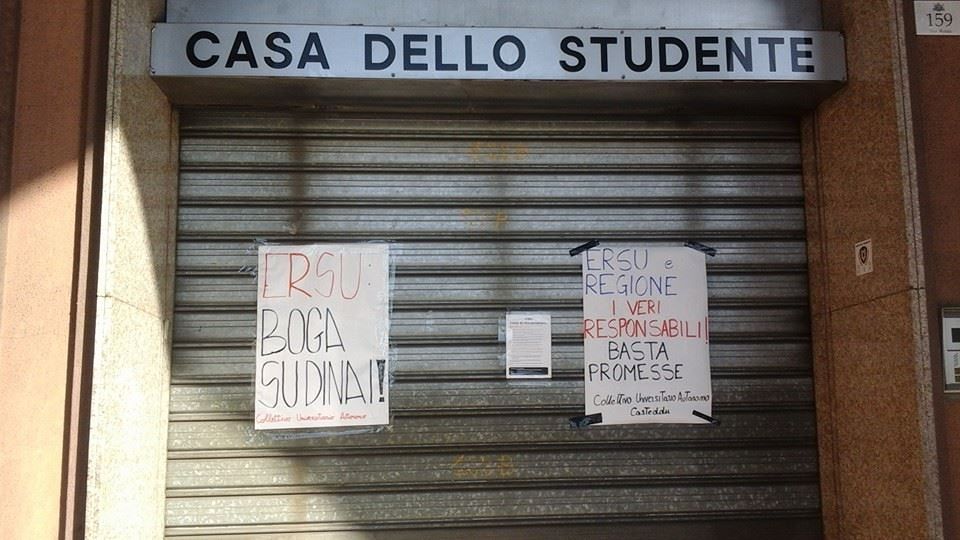 CASA DELLO STUDENTE
159
ERSU:
BOGA
SU DINAI!
Collettivo Universitario Autonomo
ERSU e
REGIONE
I VERI
RESPONSABILI!
BASTA
PROMESSE
Collettivo Universitario Autonomo
Casteddu